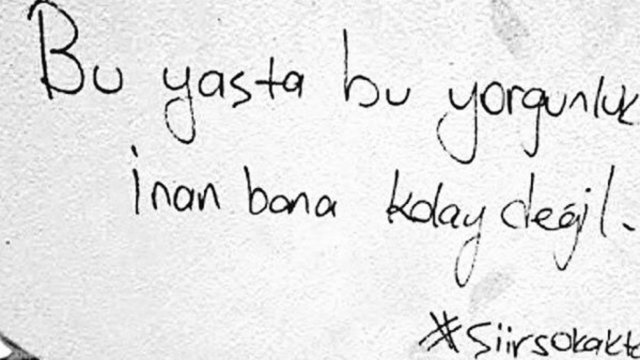 Bu yasta bu yorgunluk
inan bana kolay değil.
#Siirsokakta